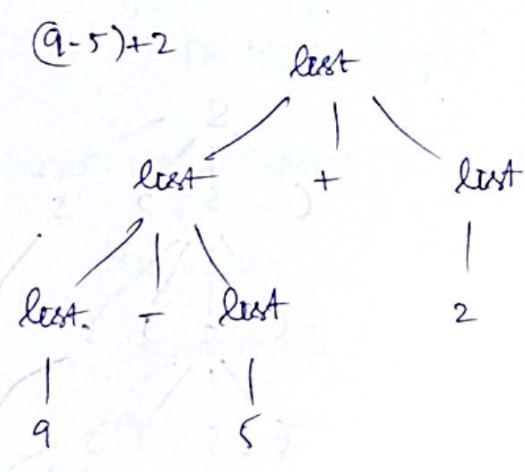 (9-5)+2
list
list + list
list. - list 2
9 5